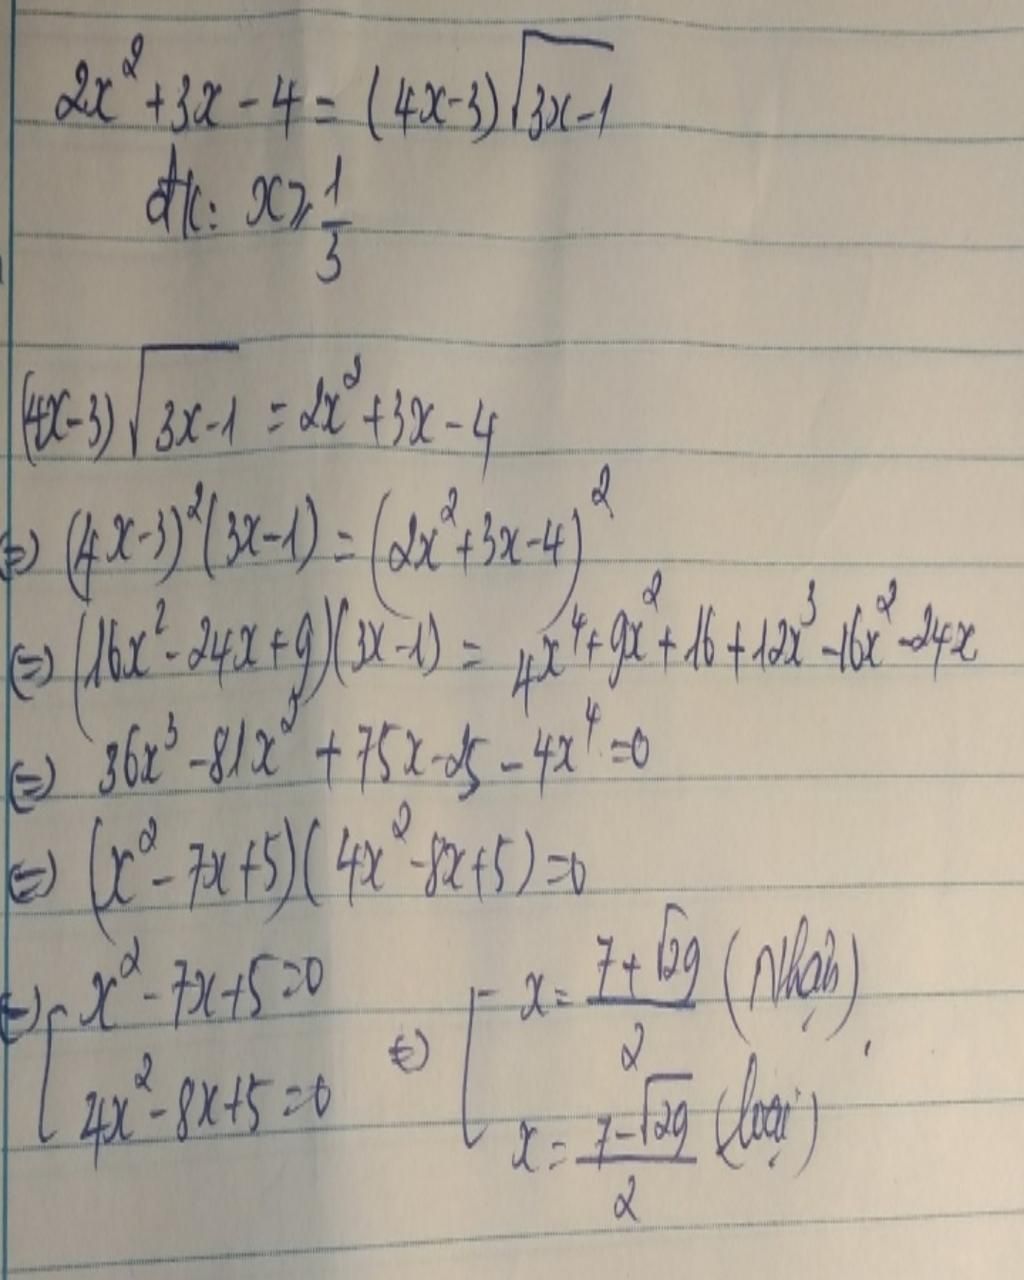 2x² + 3x - 4 = (4x-3)√3x-1
đk: x ≥ 1/3
(4x-3)√3x-1 = 2x² + 3x - 4
⇔) (4x-3)²(3x-1) = (2x² + 3x - 4)²
⇔) (16x² - 24x + 9)(3x-1) = 4x⁴ + 9x² + 16 + 12x³ - 16x² - 24x
⇔) 36x³ - 81x² + 75x - 25 - 4x⁴ = 0
⇔) (x² - 7x + 5)(4x² - 8x + 5) = 0
⇔) [ x² - 7x + 5 = 0
4x² - 8x + 5 = 0
⇔) [ x = (7 + √29)/2 (Nhận)
x = (7 - √29)/2 (loại)